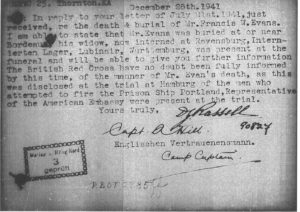 25, Thornton.
December 28th, 1941
In reply to your letter of July 21st, 1941, just
received, re the death & burial of Mr. Francis W. Evans.
able to state that Mr. Evans was buried at or near
his widow, now interned at Ravensburg, Intern-
Lager, Wurttemburg, was present at the
funeral and will be able to give you further information
The British Red Cross have no doubt been fully informed
by this time, of the manner of Mr. Evan's death, as this
was disclosed at the trial at Hamburg of the men who
attempted to fire the Prison Ship Portland, Representative
of the American Embassy were present at the trial.
Yours truly,
90824
Capt.
Englischen Vertrauensmann.
Camp Captain.
3
geprüft